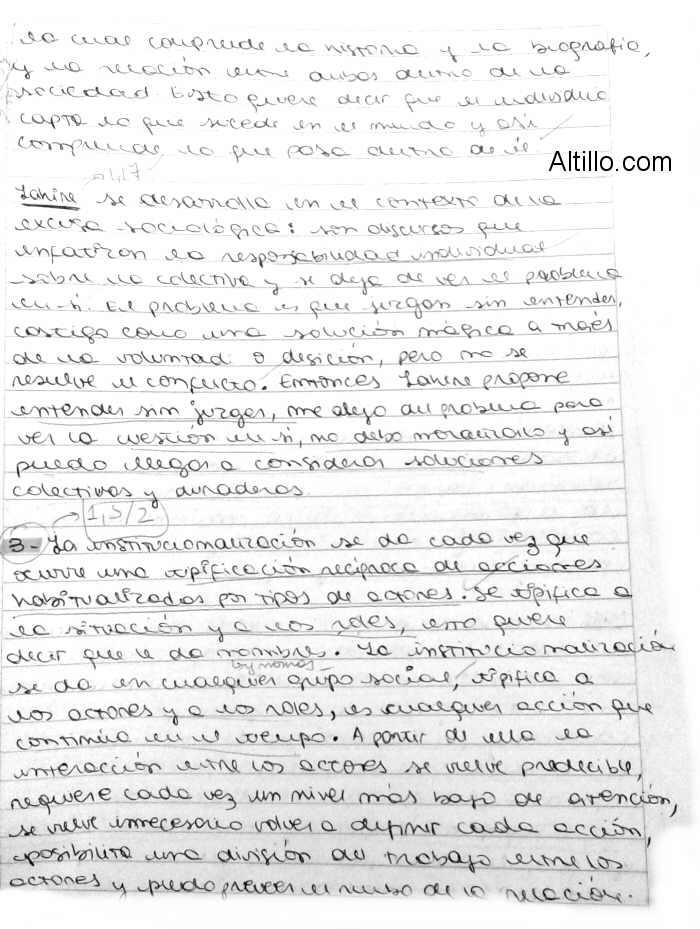 la cual comprende la historia y la biografía,
y la relación entre ambas dentro de la
sociedad. Esto quiere decir que el individuo
capta lo que sucede en el mundo y así
comprende lo que pasa dentro de él
Altillo.com
Lahire se desarrolla en el contexto de la
excusa sociológica: son discursos que
enfatizan la responsabilidad individual
sobre la colectiva y se deja de ver el problema
en sí. El problema es que juzgan sin entender,
castigo como una solución mágica a través
de la voluntad o desición, pero no se
resuelve el conflicto. Entonces Lahire propone
entender sin juzgar, me alejo del problema para
ver la cuestión en sí, no debo moralizarlo y así
puedo llegar a considerar soluciones
colectivas y duraderas
1,5/2
3- La institucionalización se da cada vez que
ocurre una tipificación recíproca de acciones
habitualizadas por tipos de actores. Se tipifica a
la situación y a los roles, esto quiere
decir que le da nombres. La institucionalización
se da en cualquier grupo social, tipifica a
los actores y a los roles, es cualquier acción que
continúa en el tiempo. A partir de ella la
interacción entre los actores se vuelve predecible,
requiere cada vez un nivel más bajo de atención,
se vuelve innecesario volver a definir cada acción,
posibilita una división del trabajo entre los
actores y puedo preveer el rumbo de la relación.